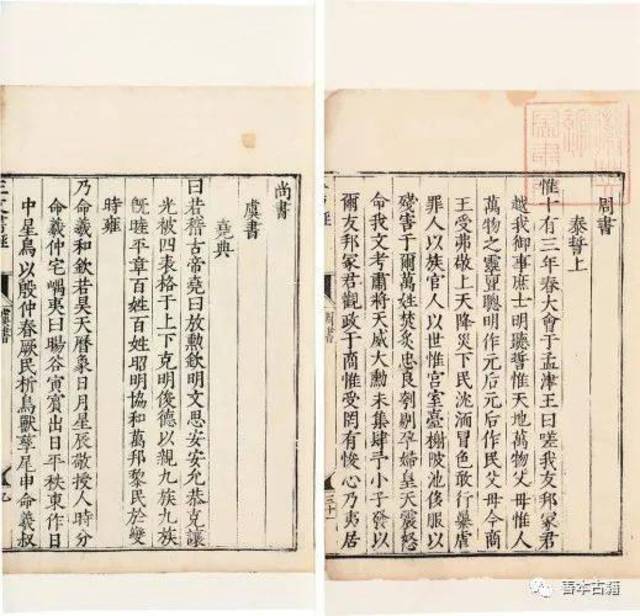 尚書
虞書
堯典
曰若稽古帝堯曰放勲欽明文思安安允恭克讓
光被四表格于上下克明俊德以親九族九族
旣睦平章百姓百姓昭明協和萬邦黎民於變
時雍
乃命羲和欽若昊天曆象日月星辰敬授人時分
命羲仲宅嵎夷曰暘谷寅賓出日平秩東作日
中星鳥以殷仲春厥民析鳥獸孳尾申命羲叔
虞書
九
周書
泰誓上
惟十有三年春大會于孟津王曰嗟我友邦冢君
越我御事庶士明聽誓惟天地萬物父母惟人
萬物之靈亶聰明作元后元后作民父母今商
王受弗敬上天降災下民沈湎冒色敢行暴虐
罪人以族官人以世惟宮室臺榭陂池侈服以
殘害于爾萬姓焚炙忠良刳剔孕婦皇天震怒
命我文考肅將天威大勳未集肆予小子發以
爾友邦冢君觀政于商惟受罔有悛心乃夷居
周書
三十一
善本古籍